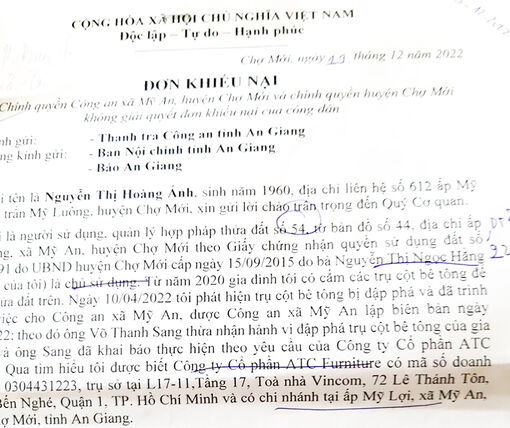 CỘNG HÒA XÃ HỘI CHỦ NGHĨA VIỆT NAM
Độc lập – Tự do – Hạnh phúc
Chợ Mới, ngày 19 tháng 12 năm 2022
ĐƠN KHIẾU NẠI
Chính quyền Công an xã Mỹ An, huyện Chợ Mới và chính quyền huyện Chợ Mới
không giải quyết đơn khiếu nại của công dân
nh gửi: - Thanh tra Công an tỉnh An Giang
ng kính gửi: - Ban Nội chính tỉnh An Giang
- Báo An Giang
i tên là Nguyễn Thị Hoàng Ánh, sinh năm 1960, địa chỉ liên hệ số 612 ấp Mỹ
trấn Mỹ Luông, huyện Chợ Mới, xin gửi lời chào trân trọng đến Quý Cơ quan.
i là người sử dụng, quản lý hợp pháp thửa đất số 54, tờ bản đồ số 44, địa chỉ ấp
ng, xã Mỹ An, huyện Chợ Mới theo Giấy chứng nhận quyền sử dụng đất số
91 do UBND huyện Chợ Mới cấp ngày 15/09/2015 do bà Nguyễn Thị Ngọc Hằng
của tôi) là chủ sử dụng. Từ năm 2020 gia đình tôi có cắm các trụ cột bê tông để
ửa đất trên. Ngày 10/04/2022 tôi phát hiện trụ cột bê tông bị đập phá và đã trình
iệc cho Công an xã Mỹ An, được Công an xã Mỹ An lập biên bản ngày
22; theo đó ông Võ Thanh Sang thừa nhận hành vi đập phá trụ cột bê tông của gia
à ông Sang đã khai báo thực hiện theo yêu cầu của Công ty Cổ phần ATC
Qua tìm hiểu tôi được biết Công ty Cổ phần ATC Furniture có mã số doanh
0304431223, trụ sở tại L17-11,Tầng 17, Toà nhà Vincom, 72 Lê Thánh Tôn,
Bến Nghé, Quận 1, TP. Hồ Chí Minh và có chi nhánh tại ấp Mỹ Lợi, xã Mỹ An,
ợ Mới, tỉnh An Giang.